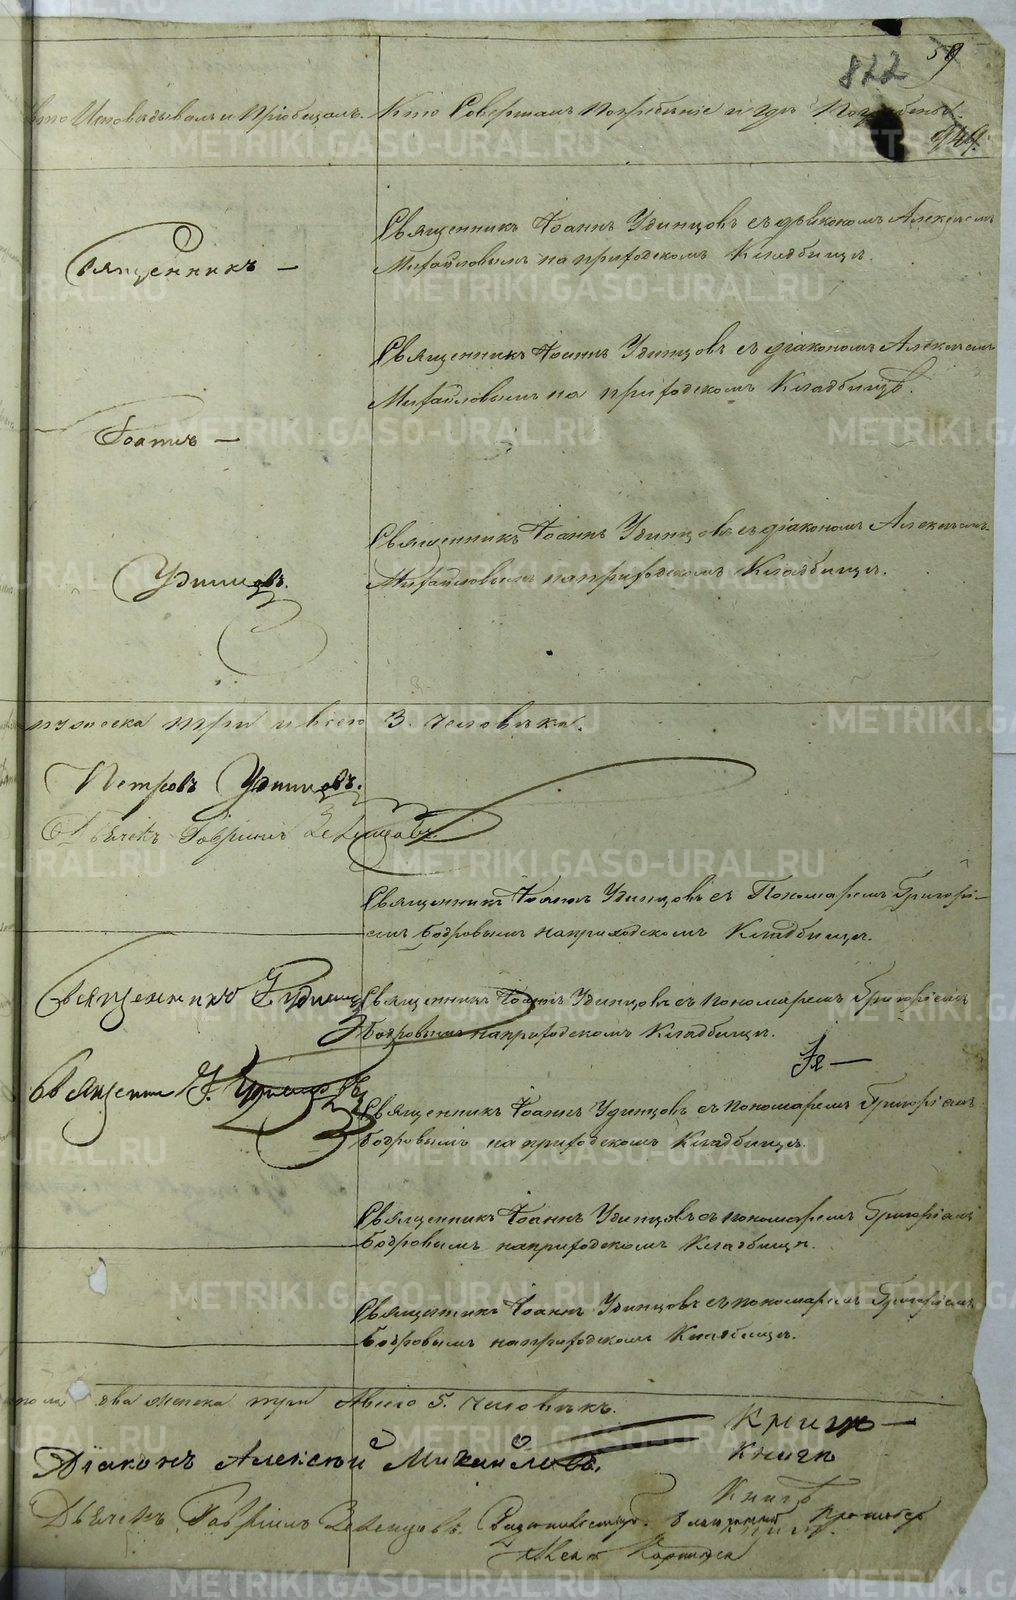 822
59
Кто Исповѣдывалъ и Пріобщалъ. Кто Совершалъ Погребеніе и гдѣ Погребены.
949.
Священникъ Іоаннъ Удинцовъ съ діакономъ Алексѣемъ
Михайловымъ на приходскомъ Кладбищѣ.
Священникъ —
Священникъ Іоаннъ Удинцовъ съ діакономъ Алексѣемъ
Михайловымъ на приходскомъ Кладбищѣ.
Іоаннъ —
Священникъ Іоаннъ Удинцовъ съ діакономъ Алексѣемъ
Михайловымъ на приходскомъ Кладбищѣ.
Удинцовъ.
мужеска три и всего 3. человѣка.
Петровъ Удинцовъ.
Дьячекъ Гавріилъ
Священникъ Іоаннъ Удинцовъ съ Пономаремъ Григорі-
емъ Бобровымъ на приходскомъ Кладбищѣ.
Священникъ І. Удинцовъ
Священникъ Іоаннъ Удинцовъ съ пономаремъ Григоріемъ
Бобровымъ на приходскомъ Кладбищѣ.
Священникъ І. Удинцовъ
Священникъ Іоаннъ Удинцовъ съ пономаремъ Григоріемъ
Бобровымъ на приходскомъ Кладбищѣ.
Священникъ Іоаннъ Удинцовъ съ пономаремъ Григоріемъ
Бобровымъ на приходскомъ Кладбищѣ.
Священникъ Іоаннъ Удинцовъ съ пономаремъ Григоріемъ
Бобровымъ на приходскомъ Кладбищѣ.
пола два женска три Авсего 5. человѣкъ.
Книгѣ —
Книги
Діаконъ Алексѣй Михайловъ.
Книгѣ
Дьячекъ Гавріилъ
METRIKI.GASO-URAL.RU